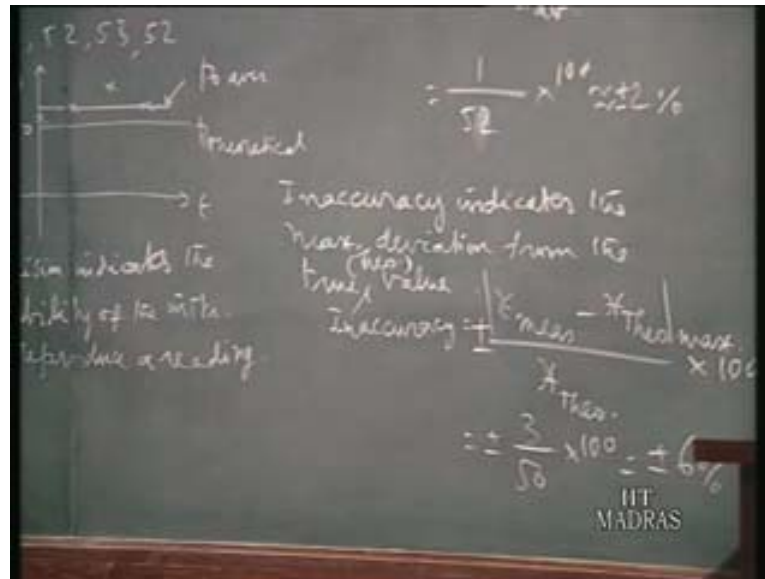 , 52, 53, 52
theoretical
t
indicates the
bility of the instr.
reproduce a reading.
= 1/52 × 100 ≈ ±2%
Inaccuracy indicates the
max. deviation from the
true (theo) value
Inaccuracy = ± |X meas - X Theo| max. / X Theo. × 100
= ± 3/50 × 100 = ± 6%
IIT
MADRAS